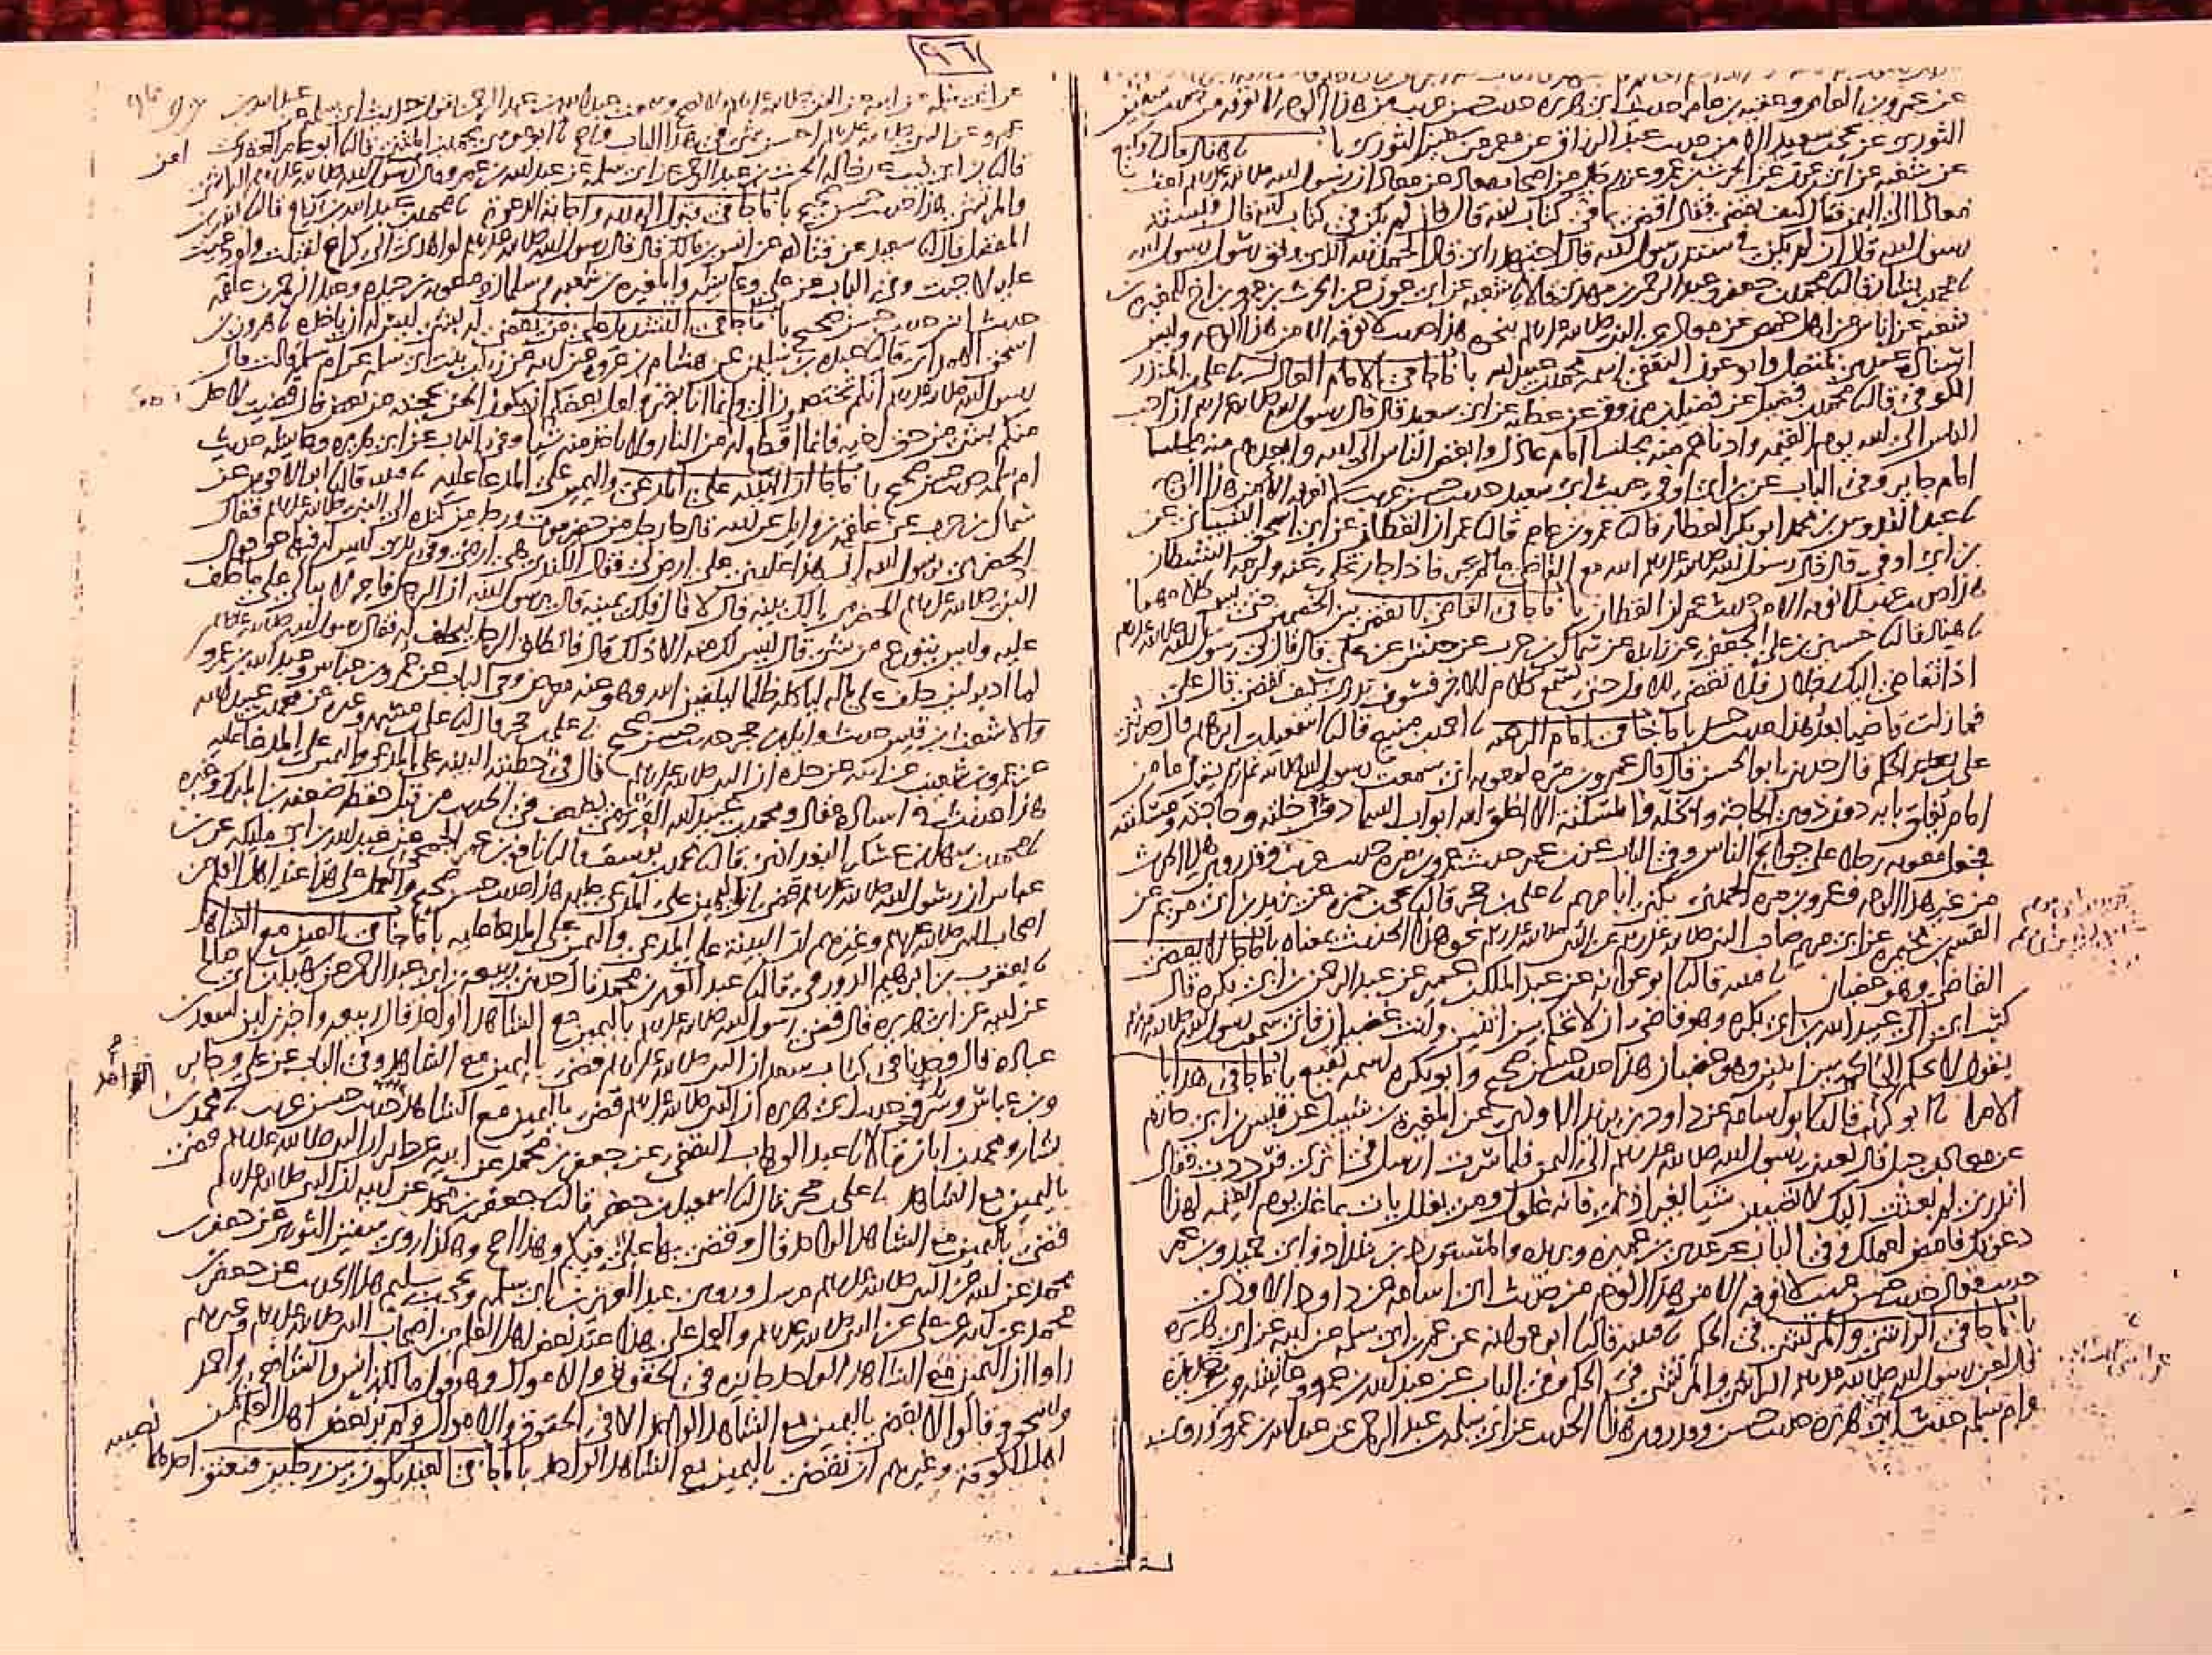 ٩٦
عن عمرو بن العاص وعقبة بن عامر حديث ابي هريرة حديث حسن غريب من هذا الوجه لا نعرفه من حديث سفين
الثوري عن يحيى بن سعيد الا من حديث عبد الرزاق عن معمر عن سفين الثوري باب هناد قال وكيع
عن شعبة عن ابي عون عن الحرث بن عمرو عن رجال من اصحاب معاذ عن معاذ ان رسول الله صلى الله عليه وسلم بعث
معاذا الى اليمن فقال كيف تقضي فقال اقضي بما في كتاب الله قال فان لم يكن في كتاب الله قال فبسنة
رسول الله قال ان لم يكن في سنة رسول الله قال اجتهد رايي قال الحمد لله الذي وفق رسول رسول الله
محمد بن بشار قال محمد بن جعفر وعبد الرحمن بن مهدي قالا شعبة عن ابي عون عن الحرث بن عمرو بن اخ للمغيرة بن
شعبة عن اناس من اهل حمص عن معاذ عن النبي صلى الله عليه وسلم بنحوه هذا حديث لا نعرفه الا من هذا الوجه وليس
اسناده عندي بمتصل وابو عون الثقفي اسمه محمد بن عبيد الله باب ما جا في الامام العادل علي بن المنذر
الكوفي قال محمد بن فضيل عن فضيل بن مرزوق عن عطية عن ابي سعيد قال قال رسول الله صلى الله عليه وسلم ان احب
الناس الى الله يوم القيمة وادناهم منه مجلسا امام عادل وابغض الناس الى الله وابعدهم منه مجلسا
امام جاير وفي الباب عن بن ابي اوفى حديث ابي سعيد حديث حسن غريب لا نعرفه الا من هذا الوجه
عبد القدوس بن محمد ابو بكر العطار قال عمرو بن عاصم قال عمران القطان عن ابي اسحق الشيباني عن
بن ابي اوفى قال قال رسول الله صلى الله عليه وسلم الله مع القاضي ما لم يجر فاذا جار تخلى عنه ولزمه الشيطان
هذا حديث غريب لا نعرفه الا من حديث عمران القطان باب ما جا في القاضي لا يقضي بين الخصمين حتى يسمع كلامهما
هناد قال حسين بن علي الجعفي عن زايدة عن سماك بن حرب عن حنش عن علي قال قال لي رسول الله صلى الله عليه وسلم
اذا تقاضى اليك رجلان فلا تقض للاول حتى تسمع كلام الاخر فسوف تدري كيف تقضي قال علي
فما زلت قاضيا بعد هذا حديث حسن باب ما جا في امام الرعية احمد بن منيع قال اسمعيل بن ابرهيم قال حدثني
علي بن الحكم قال حدثني ابو الحسن قال قال عمرو بن مرة لمعوية اني سمعت رسول الله صلى الله عليه وسلم يقول ما من
امام يغلق بابه دون ذوي الحاجة والخلة والمسكنة الا اغلق الله ابواب السما دون خلته وحاجته ومسكنته
فجعل معوية رجلا على حوايج الناس وفي الباب عن بن عمر حديث عمرو بن مرة حديث غريب وقد روي هذا الحديث
من غير هذا الوجه وعمرو بن مرة الجهني يكنى ابا مريم علي بن حجر قال يحيى بن حمزة عن يزيد بن ابي مريم عن
القسم بن مخيمرة عن ابي مريم صاحب النبي صلى الله عليه وسلم عن النبي صلى الله عليه وسلم نحو هذا الحديث بمعناه باب ما جا لا يقضي
القاضي وهو غضبان قتيبة قال ابو عوانة عن عبد الملك بن عمير عن عبد الرحمن بن ابي بكرة قال
كتب ابي الى عبيد الله بن ابي بكرة وهو قاضي ان لا تحكم بين اثنين وانت غضبان فاني سمعت رسول الله صلى الله عليه وسلم
يقول لا يحكم الحاكم بين اثنين وهو غضبان هذا حديث حسن صحيح وابو بكرة اسمه نفيع باب ما جا في هدايا
الامرا ابو كريب قال ابو اسامة عن داود بن يزيد الاودي عن المغيرة بن شبيل عن قيس بن ابي حازم
عن معاذ بن جبل قال بعثني رسول الله صلى الله عليه وسلم الى اليمن فلما سرت ارسل في اثري فرددت فقال
اتدري لم بعثت اليك لا تصيبن شيا بغير اذني فانه غلول ومن يغلل يات بما غل يوم القيمة لهذا
دعوتك فامض لعملك وفي الباب عن عدي بن عميرة وبريدة والمستورد بن شداد وابي حميد وبن عمر
حديث معاذ حديث حسن غريب لا نعرفه الا من هذا الوجه من حديث ابي اسامة عن داود الاودي
باب ما جا في الراشي والمرتشي في الحكم قتيبة قال ابو عوانة عن عمر بن ابي سلمة عن ابيه عن ابي هريرة
قال لعن رسول الله صلى الله عليه وسلم الراشي والمرتشي في الحكم وفي الباب عن عبد الله بن عمرو وعايشة وبن حديدة
وام سلمة حديث ابي هريرة حديث حسن وقد روي هذا الحديث عن ابي سلمة بن عبد الرحمن عن عبد الله بن عمرو وروي
عن ابي سلمة عن ابيه عن النبي صلى الله عليه وسلم ولا يصح وسمعت عبد الله بن عبد الرحمن يقول حديث ابي سلمة عن عبد الله بن
عمرو عن النبي صلى الله عليه وسلم احسن شي في هذا الباب واصح ابو موسى محمد بن المثنى قال ابو عامر العقدي
قال بن ابي ذيب عن خاله الحرث بن عبد الرحمن عن ابي سلمة عن عبد الله بن عمرو قال لعن رسول الله صلى الله عليه وسلم الراشي
والمرتشي هذا حديث حسن صحيح باب ما جا في قبول الهدية واجابة الدعوة محمد بن عبد الله بن بزيع قال بشر بن
المفضل قال سعيد عن قتادة عن انس بن مالك قال قال رسول الله صلى الله عليه وسلم لو اهدي الي كراع لقبلت ولو دعيت
عليه لاجبت وفي الباب عن علي وعايشة والمغيرة بن شعبة وسلمان ومعوية بن حيدة وعبد الرحمن بن علقمة
حديث انس حديث حسن صحيح باب ما جا في التشديد على من يقضى له بشي ليس له ان ياخذه هرون بن
اسحق الهمداني قال عبدة بن سليمن عن هشام بن عروة عن ابيه عن زينب بنت ابي سلمة عن ام سلمة قالت قال
رسول الله صلى الله عليه وسلم انكم تختصمون الي وانما انا بشر ولعل بعضكم ان يكون الحن بحجته من بعض فان قضيت لاحد
منكم بشي من حق اخيه فانما اقطع له من النار فلا ياخذ منه شيا وفي الباب عن ابي هريرة وعايشة حديث
ام سلمة حديث حسن صحيح باب ما جا ان البينة على المدعي واليمين على المدعا عليه قتيبة قال ابو الاحوص عن
سماك بن حرب عن علقمة بن وايل عن ابيه قال جا رجل من حضرموت ورجل من كندة الى النبي صلى الله عليه وسلم فقال
الحضرمي يرسول الله ان هذا غلبني على ارض لي فقال الكندي هي ارضي وفي يدي ليس له فيها حق فقال
النبي صلى الله عليه وسلم للحضرمي الك بينة قال لا قال فلك يمينه قال يرسول الله ان الرجل فاجر لا يبالي على ما حلف
عليه وليس يتورع من شي قال ليس لك منه الا ذلك قال فانطلق الرجل ليحلف له فقال رسول الله صلى الله عليه وسلم
لما ادبر لين حلف على ماله لياكله ظلما ليلقين الله وهو عنه معرض وفي الباب عن عمر وبن عباس وعبد الله بن عمرو
والاشعث بن قيس حديث وايل بن حجر حديث حسن صحيح علي بن حجر قال علي بن مسهر وغيره عن محمد بن عبيد الله
عن عمرو بن شعيب عن ابيه عن جده ان النبي صلى الله عليه وسلم قال في خطبته البينة على المدعي واليمين على المدعا عليه
هذا حديث في اسناده مقال ومحمد بن عبيد الله العرزمي يضعف في الحديث من قبل حفظه ضعفه بن المبارك وغيره
محمد بن سهل بن عسكر البغدادي قال محمد بن يوسف قال نافع بن عمر الجمحي عن عبد الله بن ابي مليكة عن بن
عباس ان رسول الله صلى الله عليه وسلم قضى ان اليمين على المدعى عليه هذا حديث حسن صحيح والعمل على هذا عند اهل العلم من
اصحاب النبي صلى الله عليه وسلم وغيرهم ان البينة على المدعي واليمين على المدعا عليه باب ما جا في اليمين مع الشاهد
يعقوب بن ابرهيم الدورقي قال عبد العزيز بن محمد قال حدثني ربيعة بن ابي عبد الرحمن عن سهيل بن ابي صالح
عن ابيه عن ابي هريرة قال قضى رسول الله صلى الله عليه وسلم باليمين مع الشاهد الواحد قال ربيعة واخبرني بن لسعد بن
عبادة قال وجدنا في كتاب سعد ان النبي صلى الله عليه وسلم قضى باليمين مع الشاهد وفي الباب عن علي وجابر
وبن عباس وسرق حديث ابي هريرة ان النبي صلى الله عليه وسلم قضى باليمين مع الشاهد حديث حسن غريب محمد بن
بشار ومحمد بن ابان قالا عبد الوهاب الثقفي عن جعفر بن محمد عن ابيه عن جابر ان النبي صلى الله عليه وسلم قضى
باليمين مع الشاهد علي بن حجر قال اسمعيل بن جعفر قال جعفر بن محمد عن ابيه ان النبي صلى الله عليه وسلم
قضى باليمين مع الشاهد الواحد قال وقضى بها علي فيكم وهذا اصح وهكذا روى سفين الثوري عن جعفر بن
محمد عن ابيه عن النبي صلى الله عليه وسلم مرسل وروى عبد العزيز بن ابي سلمة ويحيى بن سليم هذا الحديث عن جعفر بن
محمد عن ابيه عن علي عن النبي صلى الله عليه وسلم والعمل على هذا عند بعض اهل العلم من اصحاب النبي صلى الله عليه وسلم وغيرهم
راوا ان اليمين مع الشاهد الواحد جايزة في الحقوق والاموال وهو قول مالك بن انس والشافعي واحمد
واسحق وقالوا لا يقضى باليمين مع الشاهد الواحد الا في الحقوق والاموال ولم ير بعض اهل العلم من
اهل الكوفة وغيرهم ان يقضى باليمين مع الشاهد الواحد باب ما جا في العبد يكون بين رجلين فيعتق احدهما
نصيبه